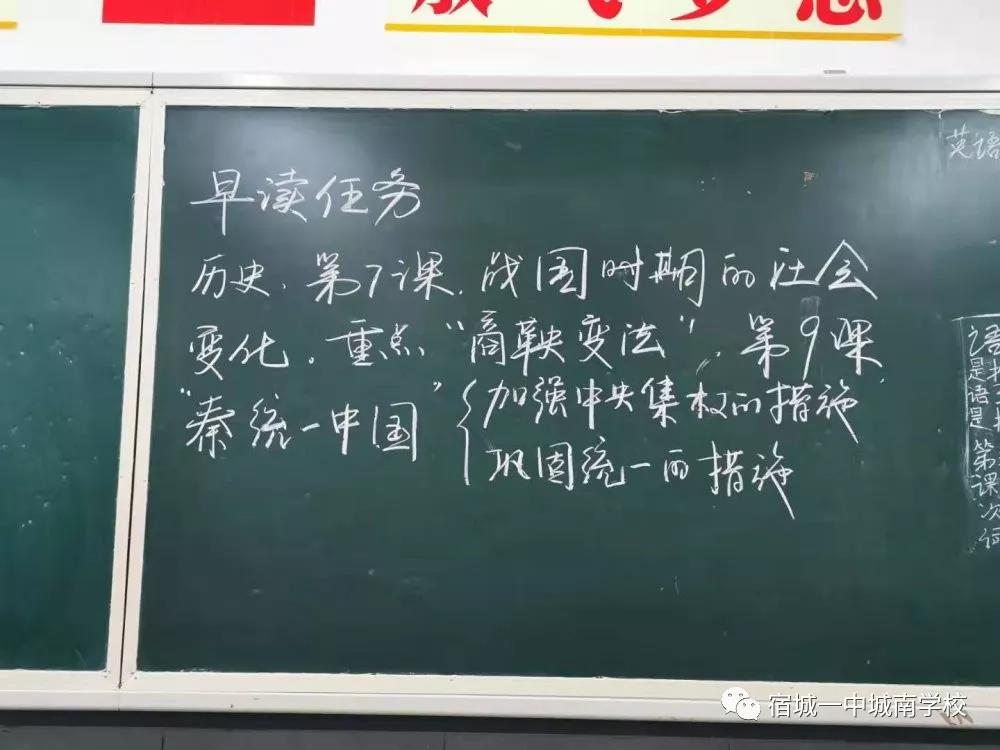 早读任务
历史、第7课、战国时期的社会
变化。重点“商鞅变法”、第9课
“秦统一中国”{加强中央集权的措施
巩固统一的措施
英语
宿城一中城南学校